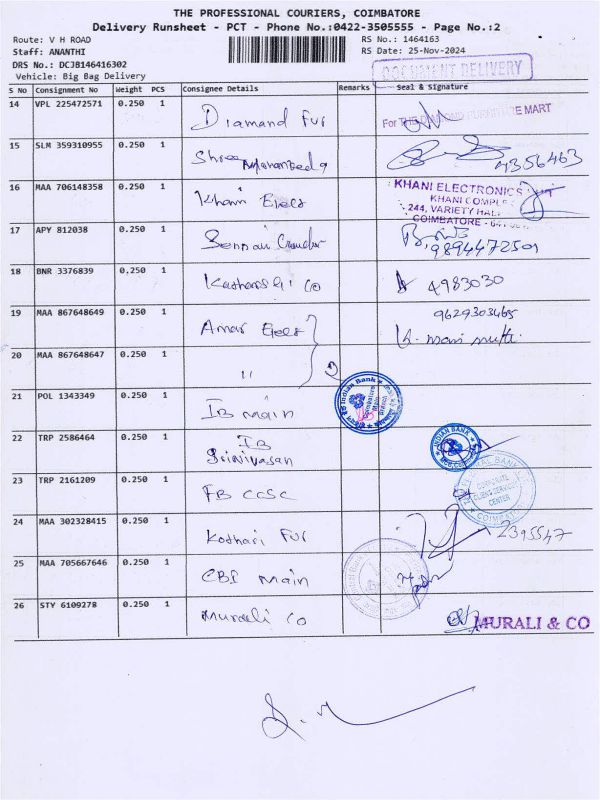 THE PROFESSIONAL COURIERS, COIMBATORE
Delivery Runsheet - PCT - Phone No.:0422-3505555 - Page No.:2
Route: V H ROAD
RS No.: 1464163
Staff: ANANTHI
RS Date: 25-Nov-2024
DRS No.: DCJB146416302
Vehicle: Big Bag Delivery
DOCUMENT DELIVERY
S No Consignment No Weight PCS Consignee Details Remarks Seal & Signature
14 VPL 225472571 0.250 1 Diamand Fur
For THE DIAMOND FURNITURE MART
15 SLM 359310955 0.250 1 Shree 4356463
16 MAA 706148358 0.250 1 Khani Elecs
KHANI ELECTRONICS
KHANI COMPLEX
244, VARIETY HALL
COIMBATORE
17 APY 812038 0.250 1 9894472501
18 BNR 3376839 0.250 1 Co 4983030
19 MAA 867648649 0.250 1 Amar Elecs 9629303465
K. mari muttu
20 MAA 867648647 0.250 1 "
21 POL 1343349 0.250 1 IB main
Indian Bank
22 TRP 2586464 0.250 1 IB
Srinivasan
INDIAN BANK
23 TRP 2161209 0.250 1 FB CCSC
CORPORATE
CLIENT SERVICE
CENTER
COIMBATORE
24 MAA 302328415 0.250 1 Kothari Fur 2395547
25 MAA 705667646 0.250 1 CBI main
26 STY 6109278 0.250 1 Murali Co
MURALI & CO